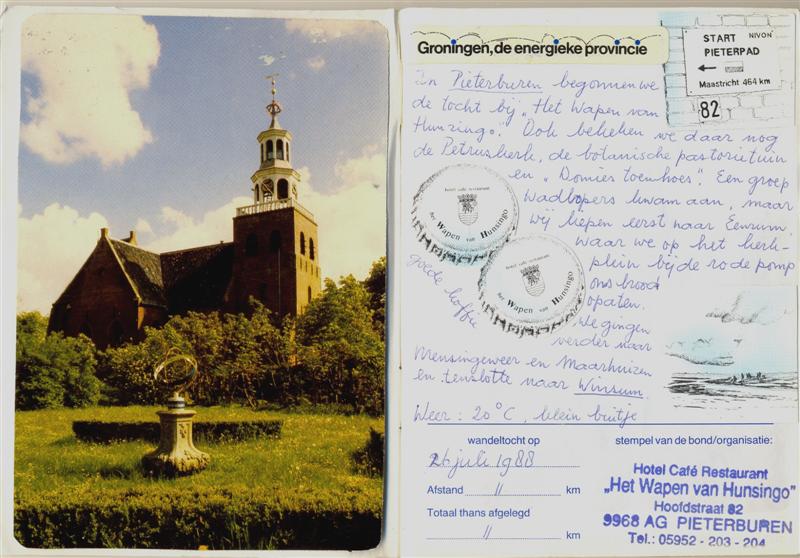 Groningen, de energieke provincie
START NIVON
PIETERPAD
Maastricht 464 km
82
In Pieterburen begonnen we
de tocht bij "Het Wapen van
Hunzingo". Ook bekeken we daar nog
de Petruskerk, de botanische pastorietuin
en "Domies toenhoes". Een groep
Wadlopers kwam aan, maar
wij liepen eerst naar Eenrum,
waar we op het kerk-
plein bij de rode pomp
ons brood
opaten.
We gingen
verder naar
Mensingeweer en Maarhuizen
en tenslotte naar Winsum.
Weer: 20°C, klein buitje
goede koffie
hotel café restaurant
het Wapen van Hunsingo
hotel café restaurant
het Wapen van Hunsingo
wandeltocht op
26 juli 1988
Afstand 11 km
Totaal thans afgelegd
11 km
stempel van de bond/organisatie:
Hotel Café Restaurant
„Het Wapen van Hunsingo"
Hoofdstraat 82
9968 AG PIETERBUREN
Tel.: 05952 - 203 - 204